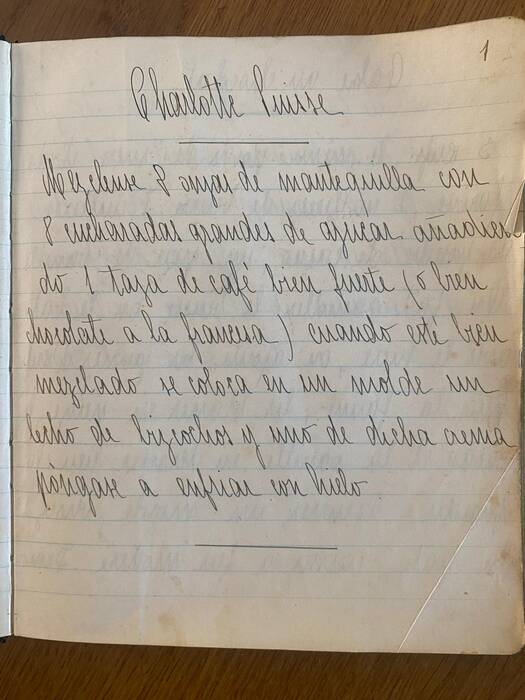 1
Charlotte Suisse
Mezclense 8 onzas de mantequilla con
8 cucharadas grandes de azucar añadien
do 1 taza de café bien fuerte (o bien
chocolate a la francesa) cuando esté bien
mezclado se coloca en un molde un
lecho de bizcochos y uno de dicha crema
póngase a enfriar con hielo